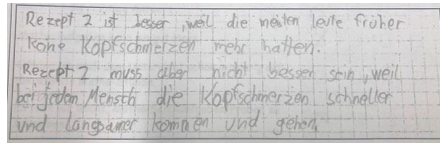 Rezept 2 ist besser, weil die meisten leute früher
keine Kopfschmerzen mehr hatten.
Rezept 2 muss aber nicht besser sein, weil
bei jedem Mensch die Kopfschmerzen schneller
und langsamer kommen und gehen.